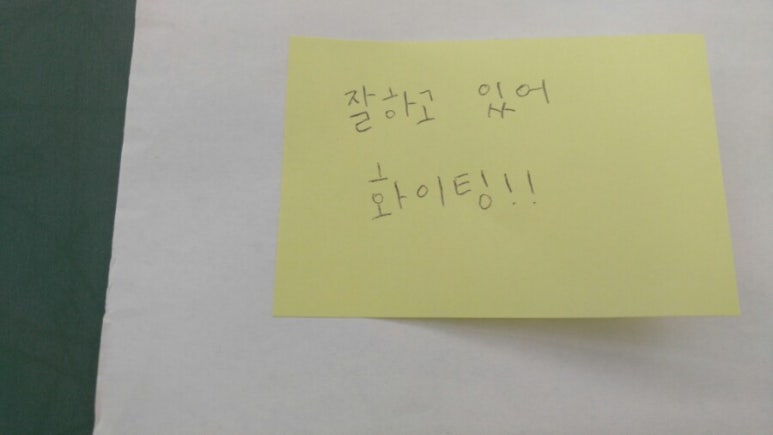 잘하고 있어
화이팅!!